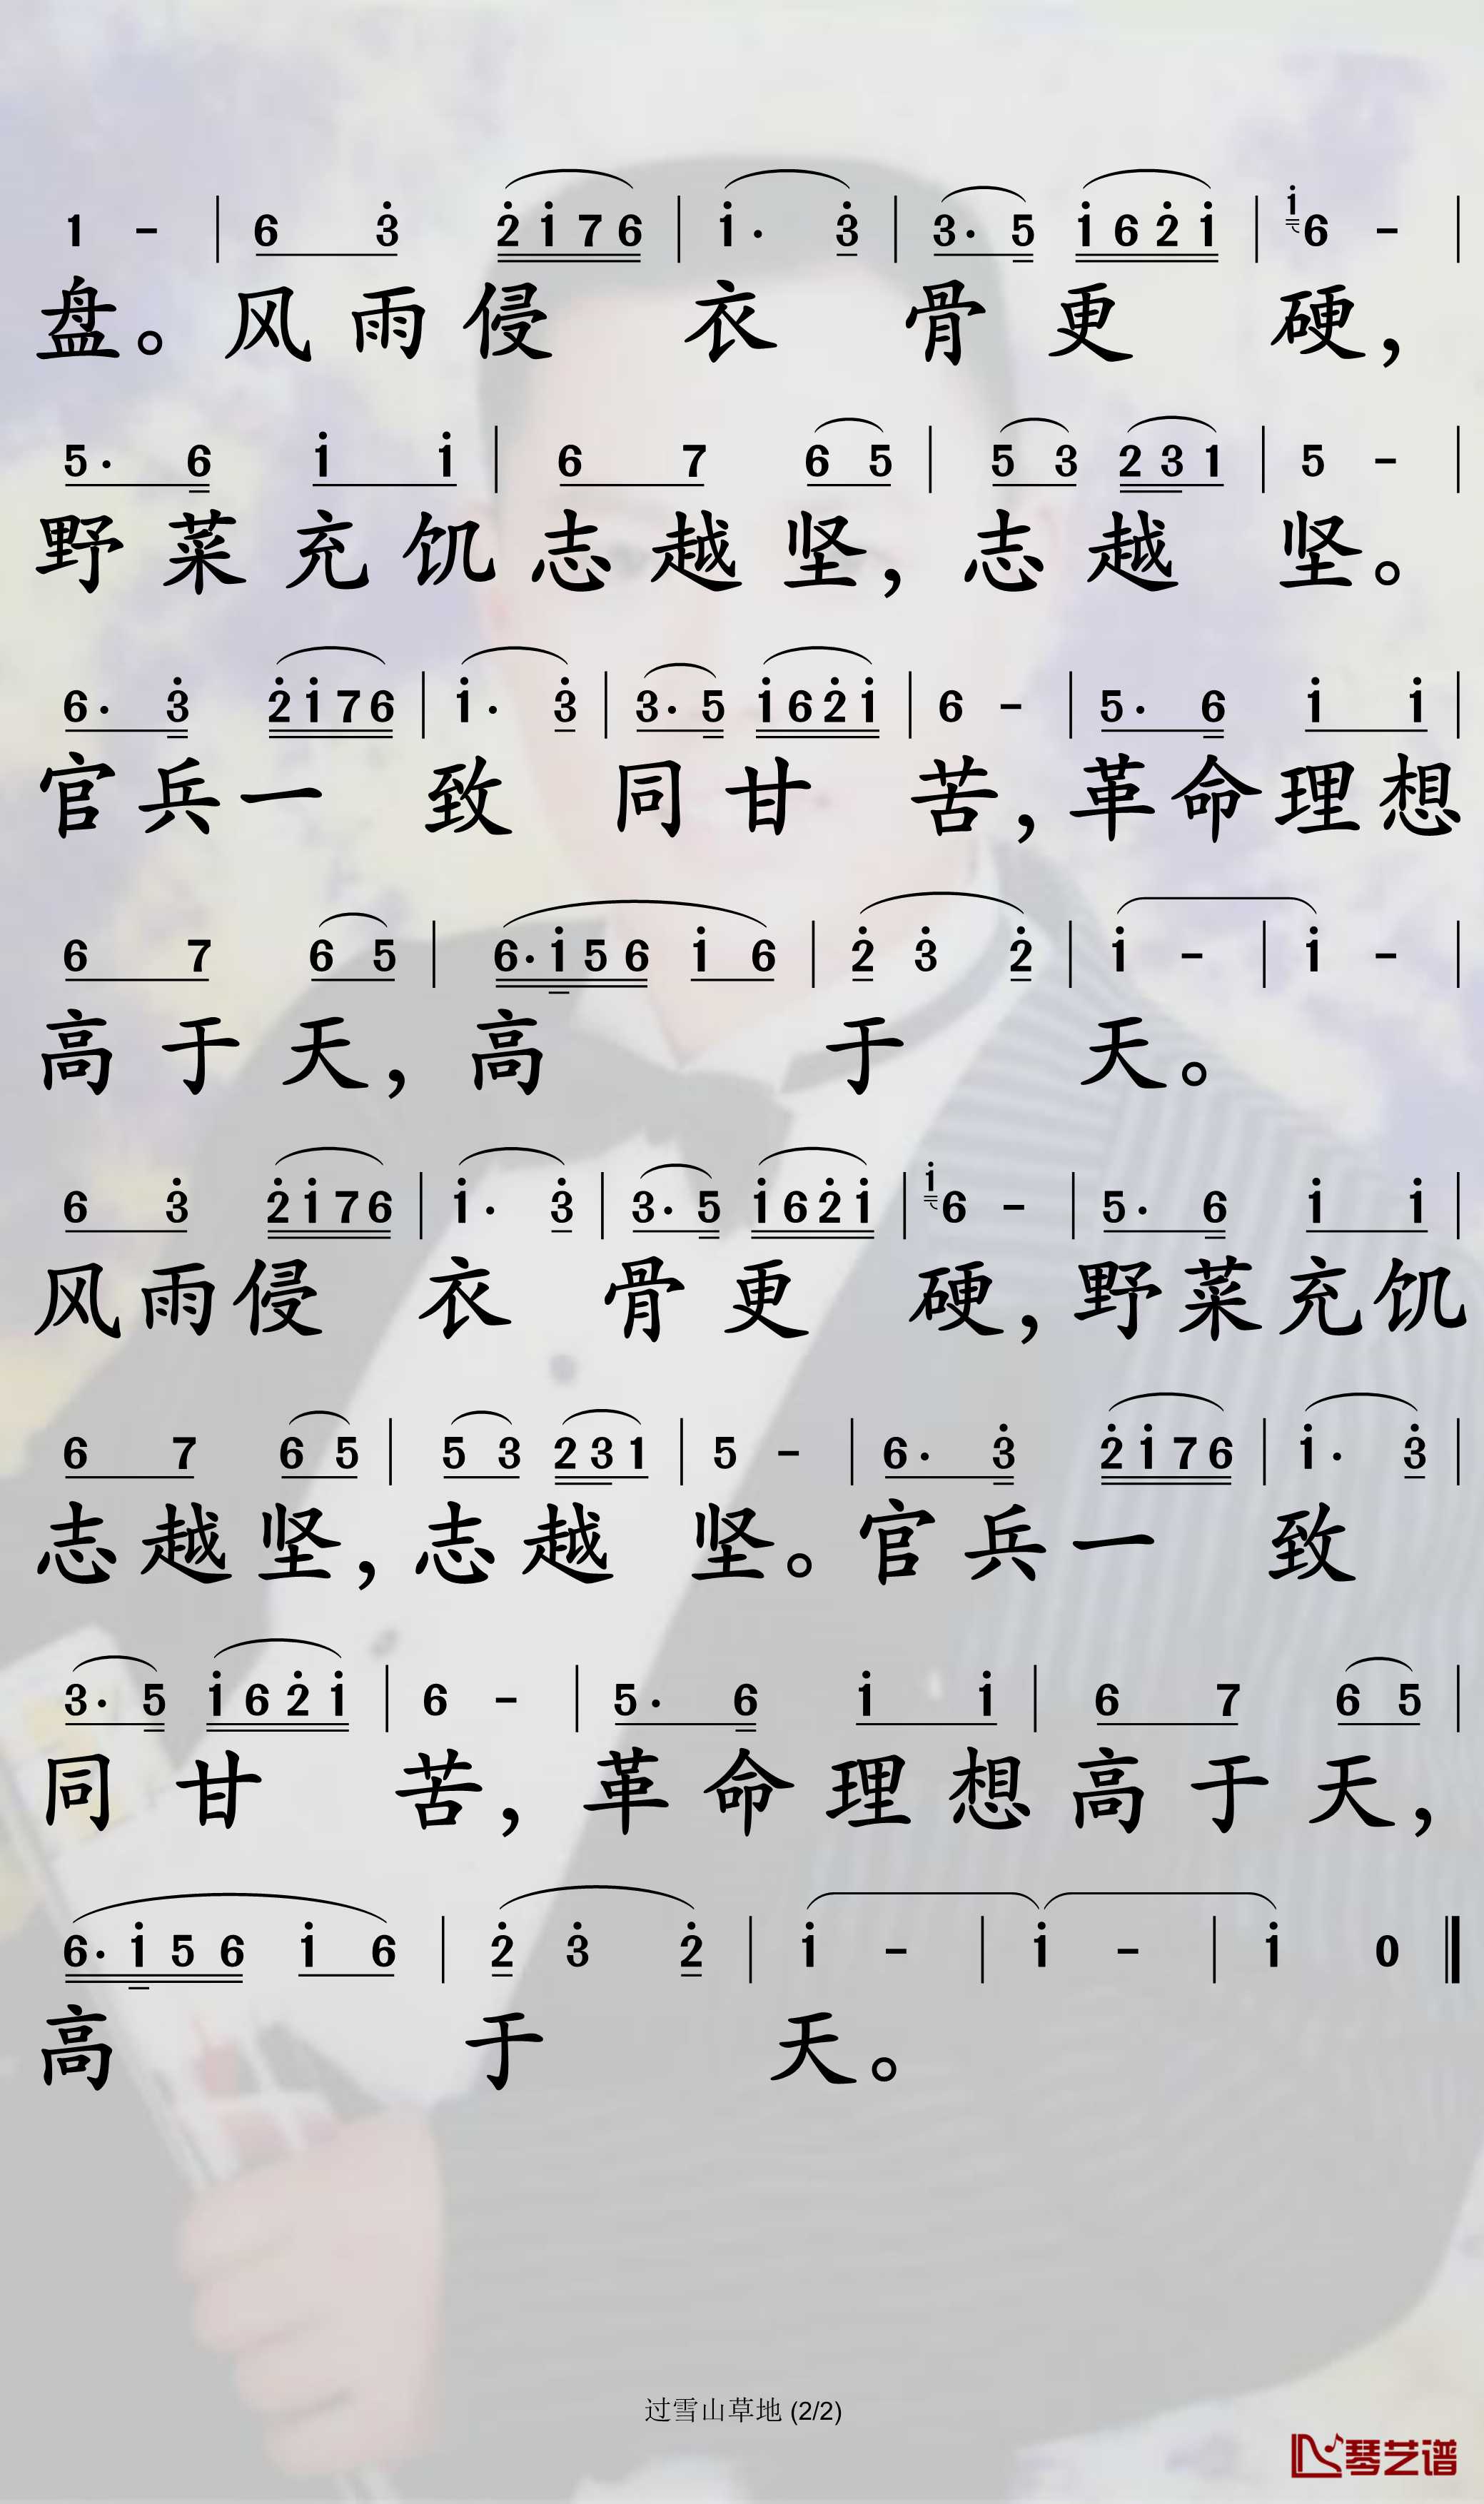 1 - | 6 3̇ 2̇ 1̇ 7 6 | 1̇· 3̇ | 3· 5 1̇ 6 2̇ 1̇ | 1̇ 6 - |
盘。风雨侵 衣 骨更 硬，
5· 6 1̇ 1̇ | 6 7 6 5 | 5 3 2 3 1 | 5 - |
野菜充饥志越坚，志越 坚。
6· 3̇ 2̇ 1̇ 7 6 | 1̇· 3̇ | 3· 5 1̇ 6 2̇ 1̇ | 6 - | 5· 6 1̇ 1̇ |
官兵一 致 同甘 苦，革命理想
6 7 6 5 | 6· 1̇ 5 6 1̇ 6 | 2̇ 3̇ 2̇ | 1̇ - | 1̇ - |
高于天，高 于 天。
6 3̇ 2̇ 1̇ 7 6 | 1̇· 3̇ | 3· 5 1̇ 6 2̇ 1̇ | 1̇ 6 - | 5· 6 1̇ 1̇ |
风雨侵 衣 骨更 硬，野菜充饥
6 7 6 5 | 5 3 2 3 1 | 5 - | 6· 3̇ 2̇ 1̇ 7 6 | 1̇· 3̇ |
志越坚，志越 坚。官兵一 致
3· 5 1̇ 6 2̇ 1̇ | 6 - | 5· 6 1̇ 1̇ | 6 7 6 5 |
同甘 苦，革命理想高于天，
6· 1̇ 5 6 1̇ 6 | 2̇ 3̇ 2̇ | 1̇ - | 1̇ - | 1̇ 0 ‖
高 于 天。
过雪山草地 (2/2)
琴艺谱